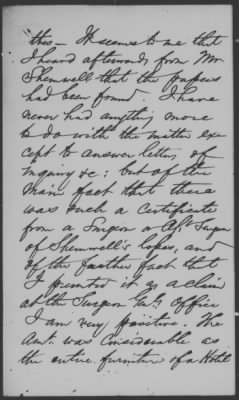 this – It seems to me that
I heard afterwards from Mr
Shemwell that the papers
had been found. I have
never had anything more
to do with the matter ex
cept to answer letters of
inquiry &c: but of the
main fact that there
was such a certificate
from a Surgeon or Asst Surgn
of Shemwell's losses, and
of the further fact that
I presented it as a claim
at the Surgeon Genls Office
I am very positive. The
Amt. was considerable as
the entire furniture of a Hotel